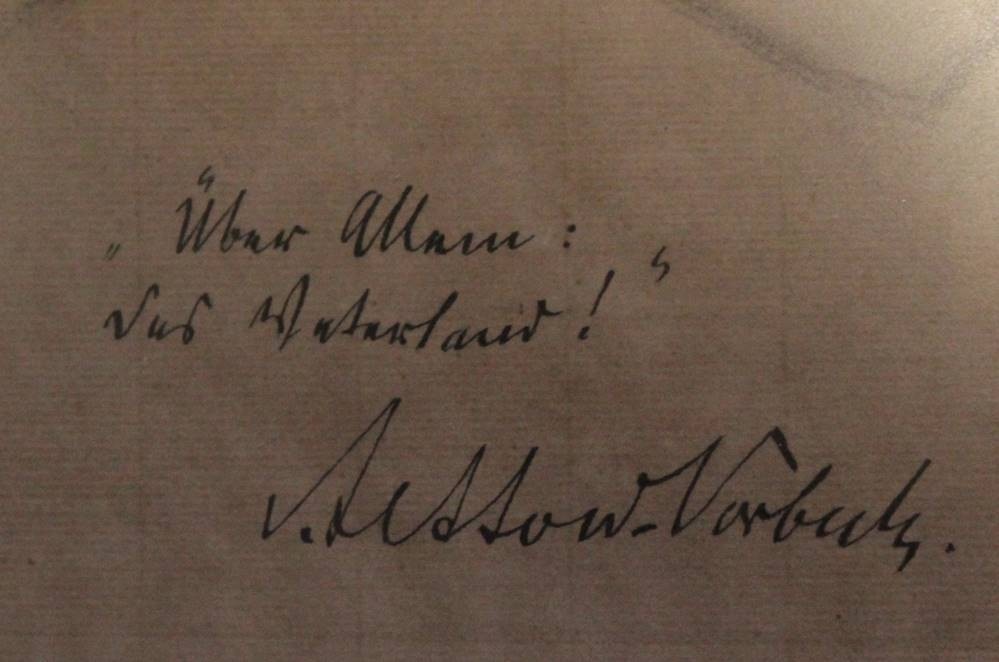 „Über Allem:
das Vaterland!“
v. Lettow-Vorbeck.